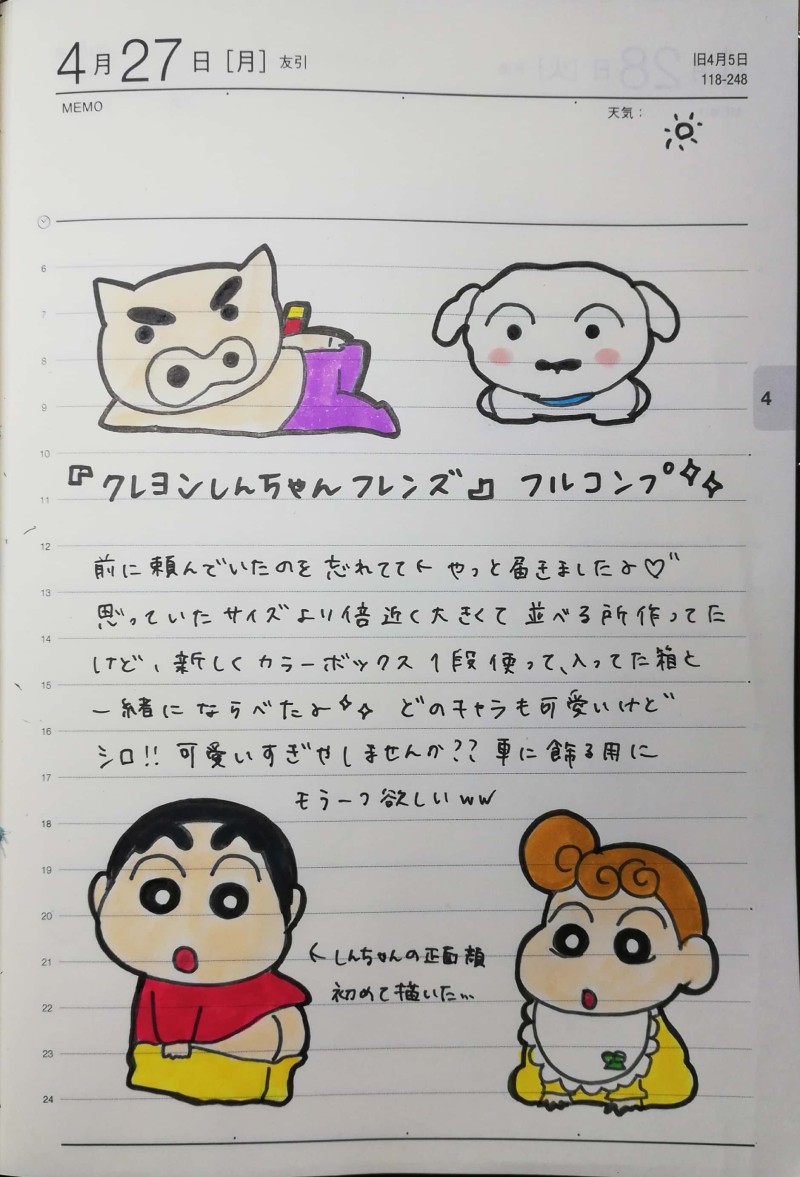 4月27日[月] 友引
旧4月5日
118-248
MEMO
天気：
6
7
8
9
4
10
『クレヨンしんちゃんフレンズ』 フルコンプ
11
12
前に頼んでいたのを忘れてて← やっと届きましたよ♡"
13
思っていたサイズより倍近く大きくて 並べる所作ってた
14
けど、新しくカラーボックス1段使って、入ってた箱と
15
一緒にならべたよ✧✧ どのキャラも可愛いけど
16
シロ!! 可愛いすぎやしませんか?? 車に飾る用に
17
もう一つ欲しいww
18
19
20
21
←しんちゃんの正面顔
初めて描いた…
22
23
24